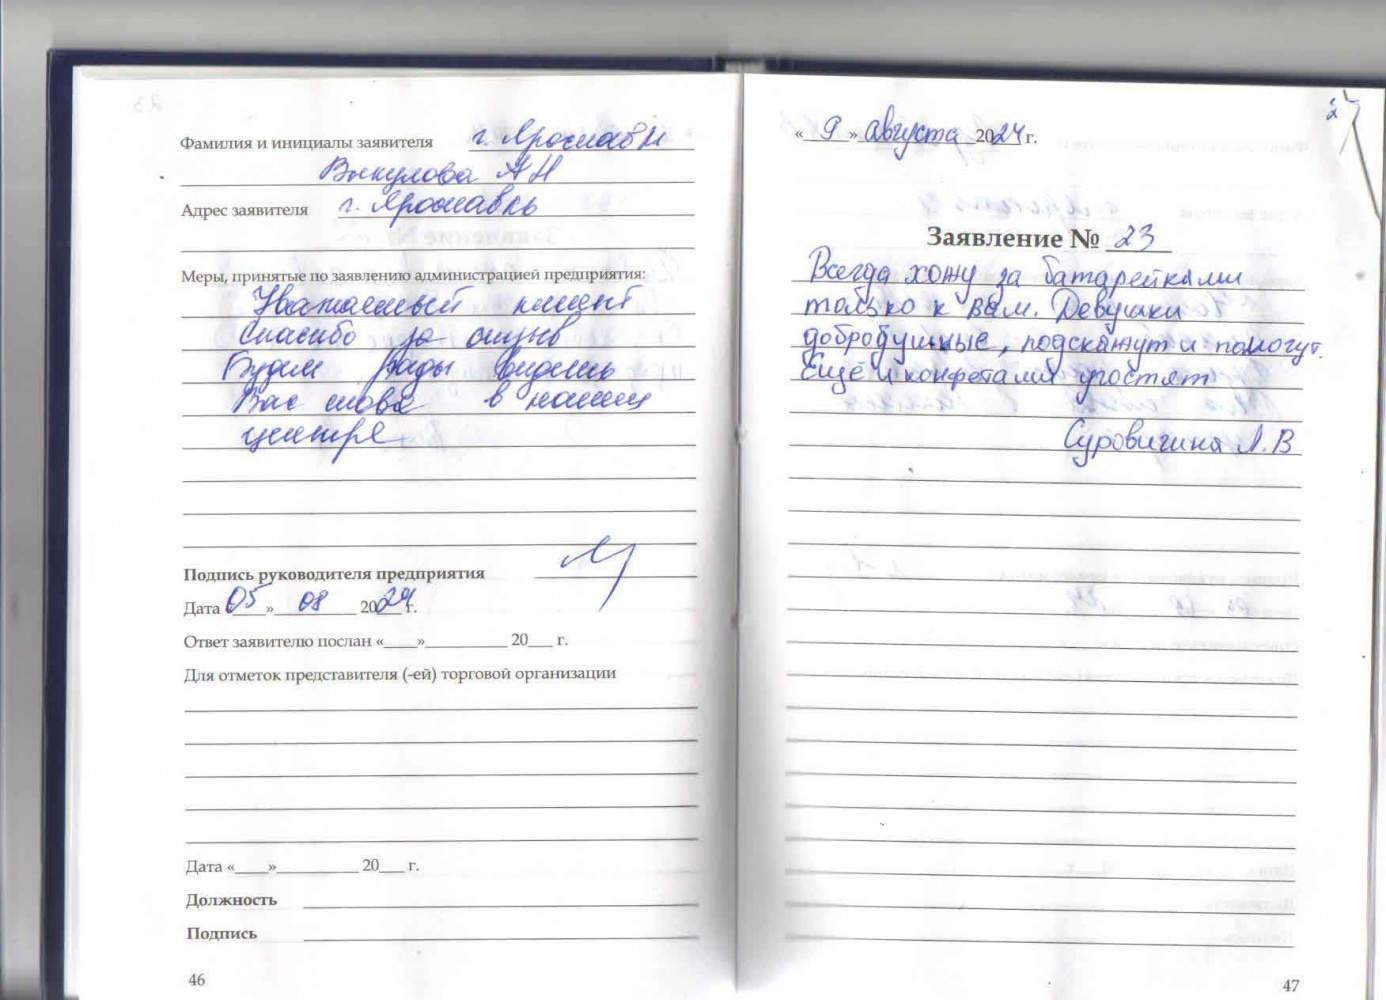 Фамилия и инициалы заявителя г. Ярославль
Викулова А Н
Адрес заявителя г. Ярославль
Меры, принятые по заявлению администрацией предприятия:
Уважаемый клиент
Спасибо за отзыв
Будем рады видеть
Вас снова в нашем
центре
Подпись руководителя предприятия
Дата «05» 08 2024 г.
Ответ заявителю послан «___»__________ 20___ г.
Для отметок представителя (-ей) торговой организации
Дата «____»__________ 20___ г.
Должность
Подпись
46
« 9 » августа 2024 г.
Заявление № 23
Всегда хожу за батарейками
только к вам. Девушки
добродушные, подскажут и помогут.
Ещё и конфетами угостят
Суровигина Л.В
47